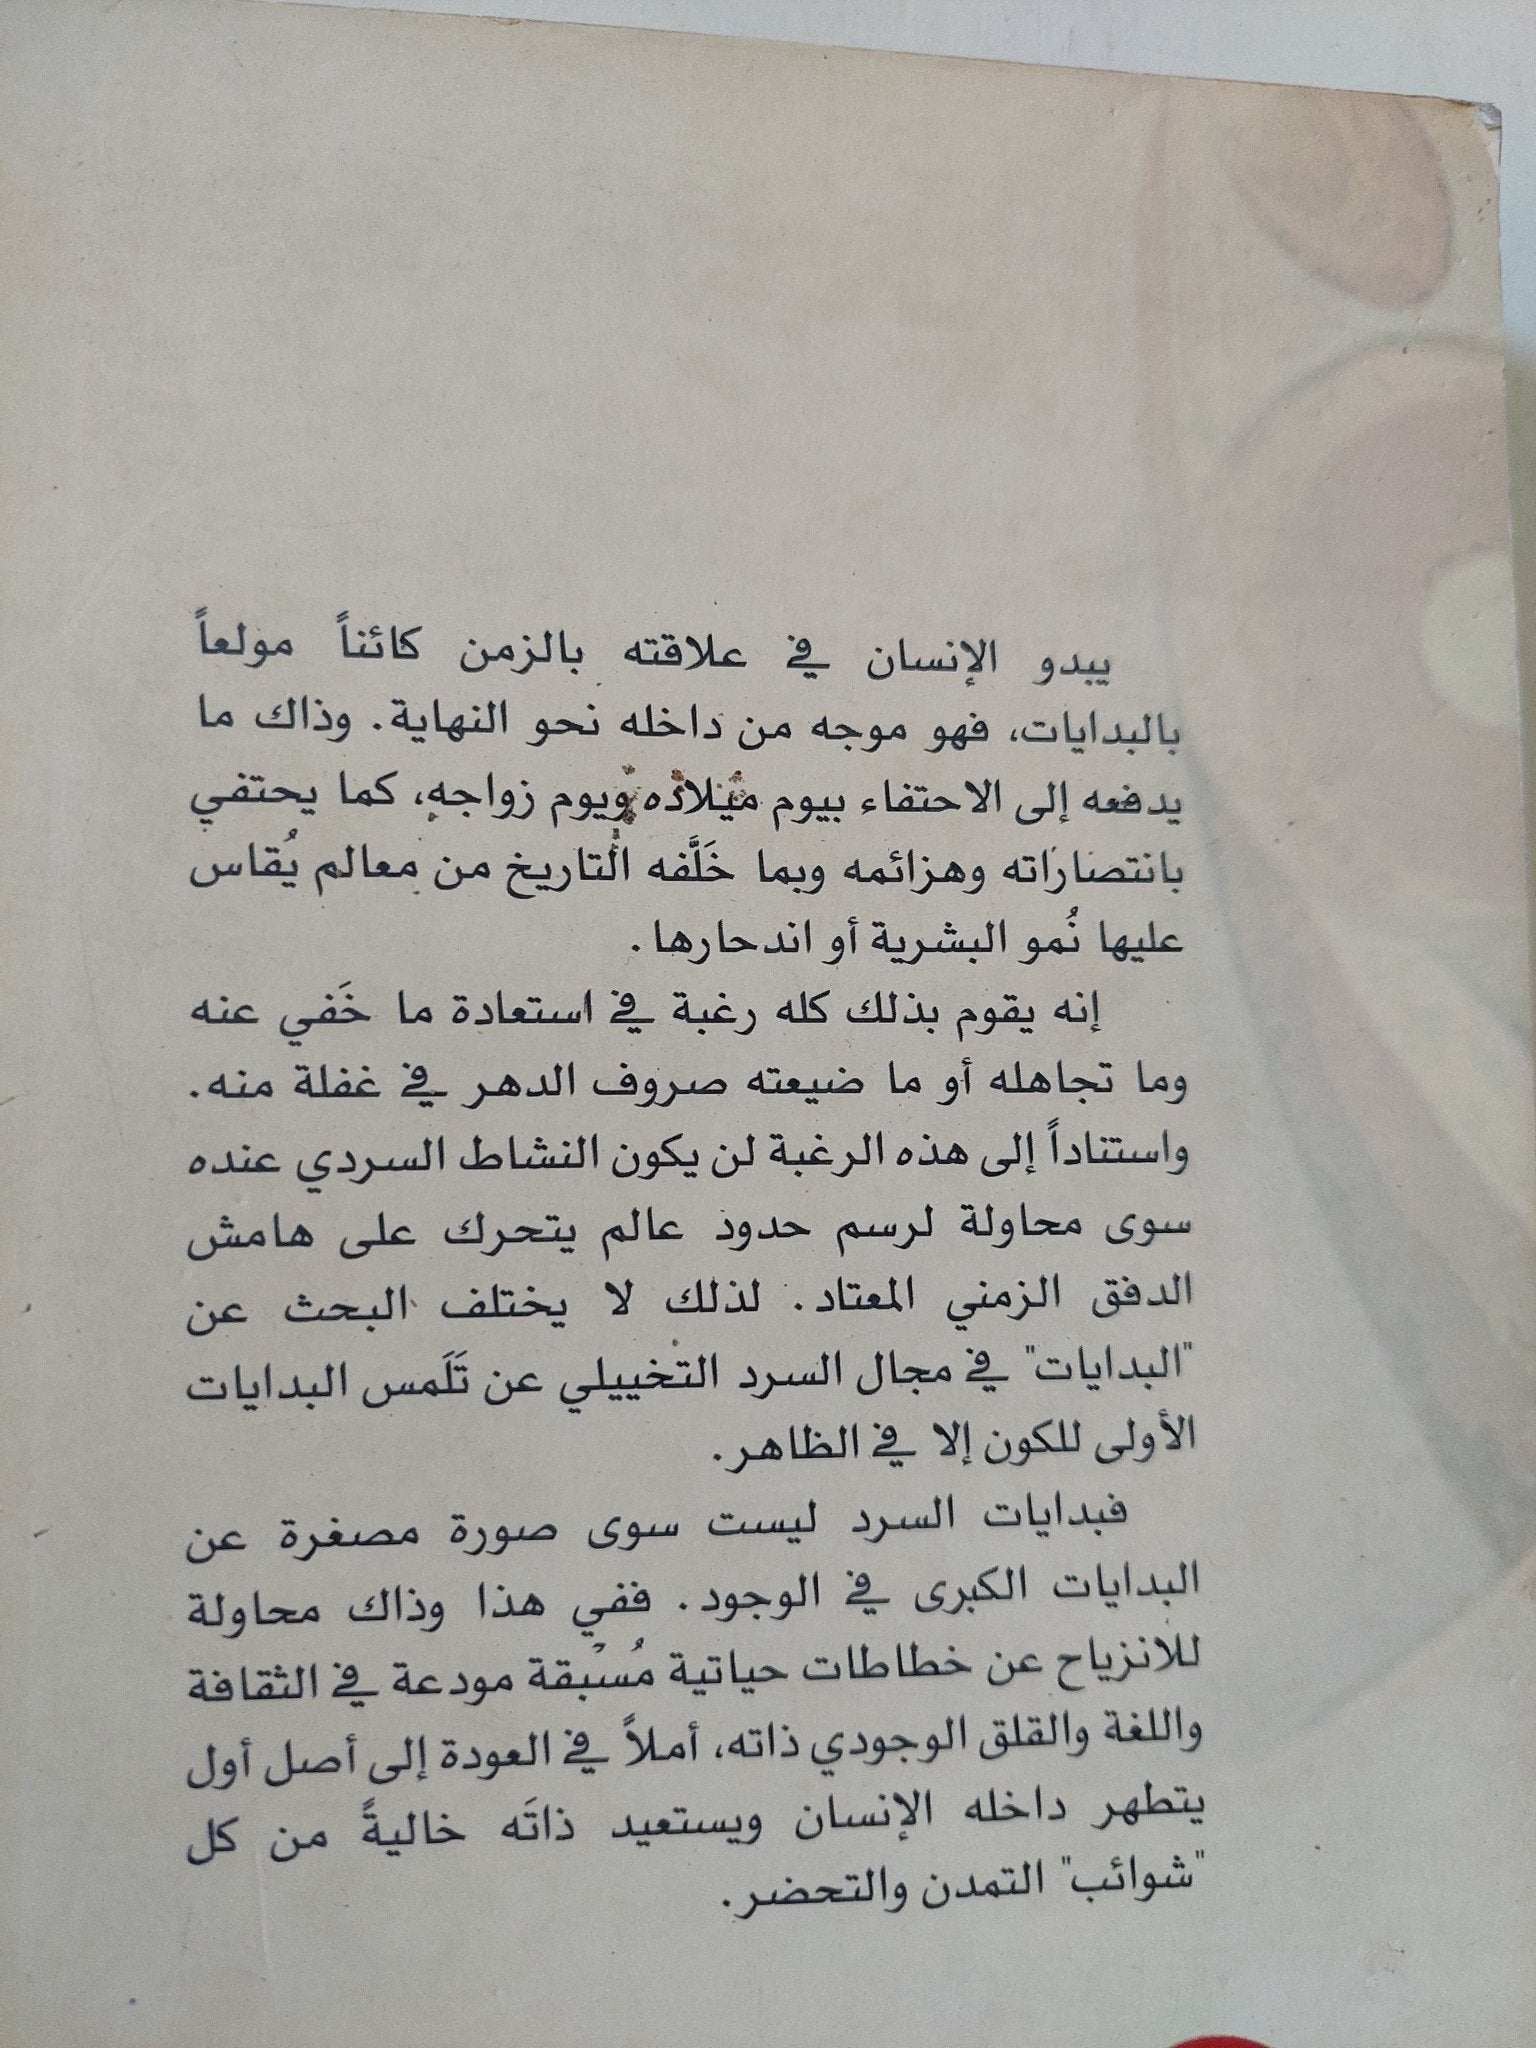 يبدو الإنسان في علاقته بالزمن كائناً مولعاً
بالبدايات، فهو موجه من داخله نحو النهاية. وذاك ما
يدفعه إلى الاحتفاء بيوم ميلاده ويوم زواجه، كما يحتفي
بانتصاراته وهزائمه وبما خَلَّفه التاريخ من معالم يُقاس
عليها نُمو البشرية أو اندحارها.
إنه يقوم بذلك كله رغبة في استعادة ما خَفي عنه
وما تجاهله أو ما ضيعته صروف الدهر في غفلة منه.
واستناداً إلى هذه الرغبة لن يكون النشاط السردي عنده
سوى محاولة لرسم حدود عالم يتحرك على هامش
الدفق الزمني المعتاد. لذلك لا يختلف البحث عن
"البدايات" في مجال السرد التخييلي عن تَلَمس البدايات
الأولى للكون إلا في الظاهر.
فبدايات السرد ليست سوى صورة مصغرة عن
البدايات الكبرى في الوجود. ففي هذا وذاك محاولة
للانزياح عن خطاطات حياتية مُسْبقة مودعة في الثقافة
واللغة والقلق الوجودي ذاته، أملاً في العودة إلى أصل أول
يتطهر داخله الإنسان ويستعيد ذاتَه خاليةً من كل
"شوائب" التمدن والتحضر.